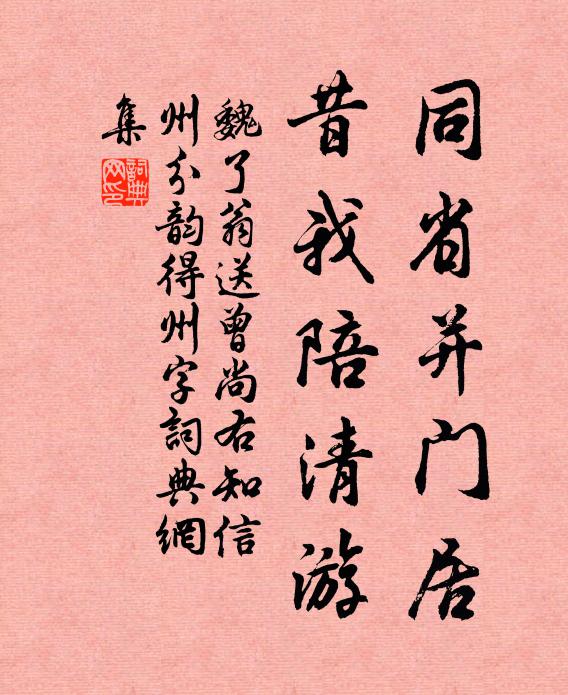 同省并门居
昔我陪清游
魏了翁送曾尚右知信
州分韵得州字词典網
集
詞典
网印